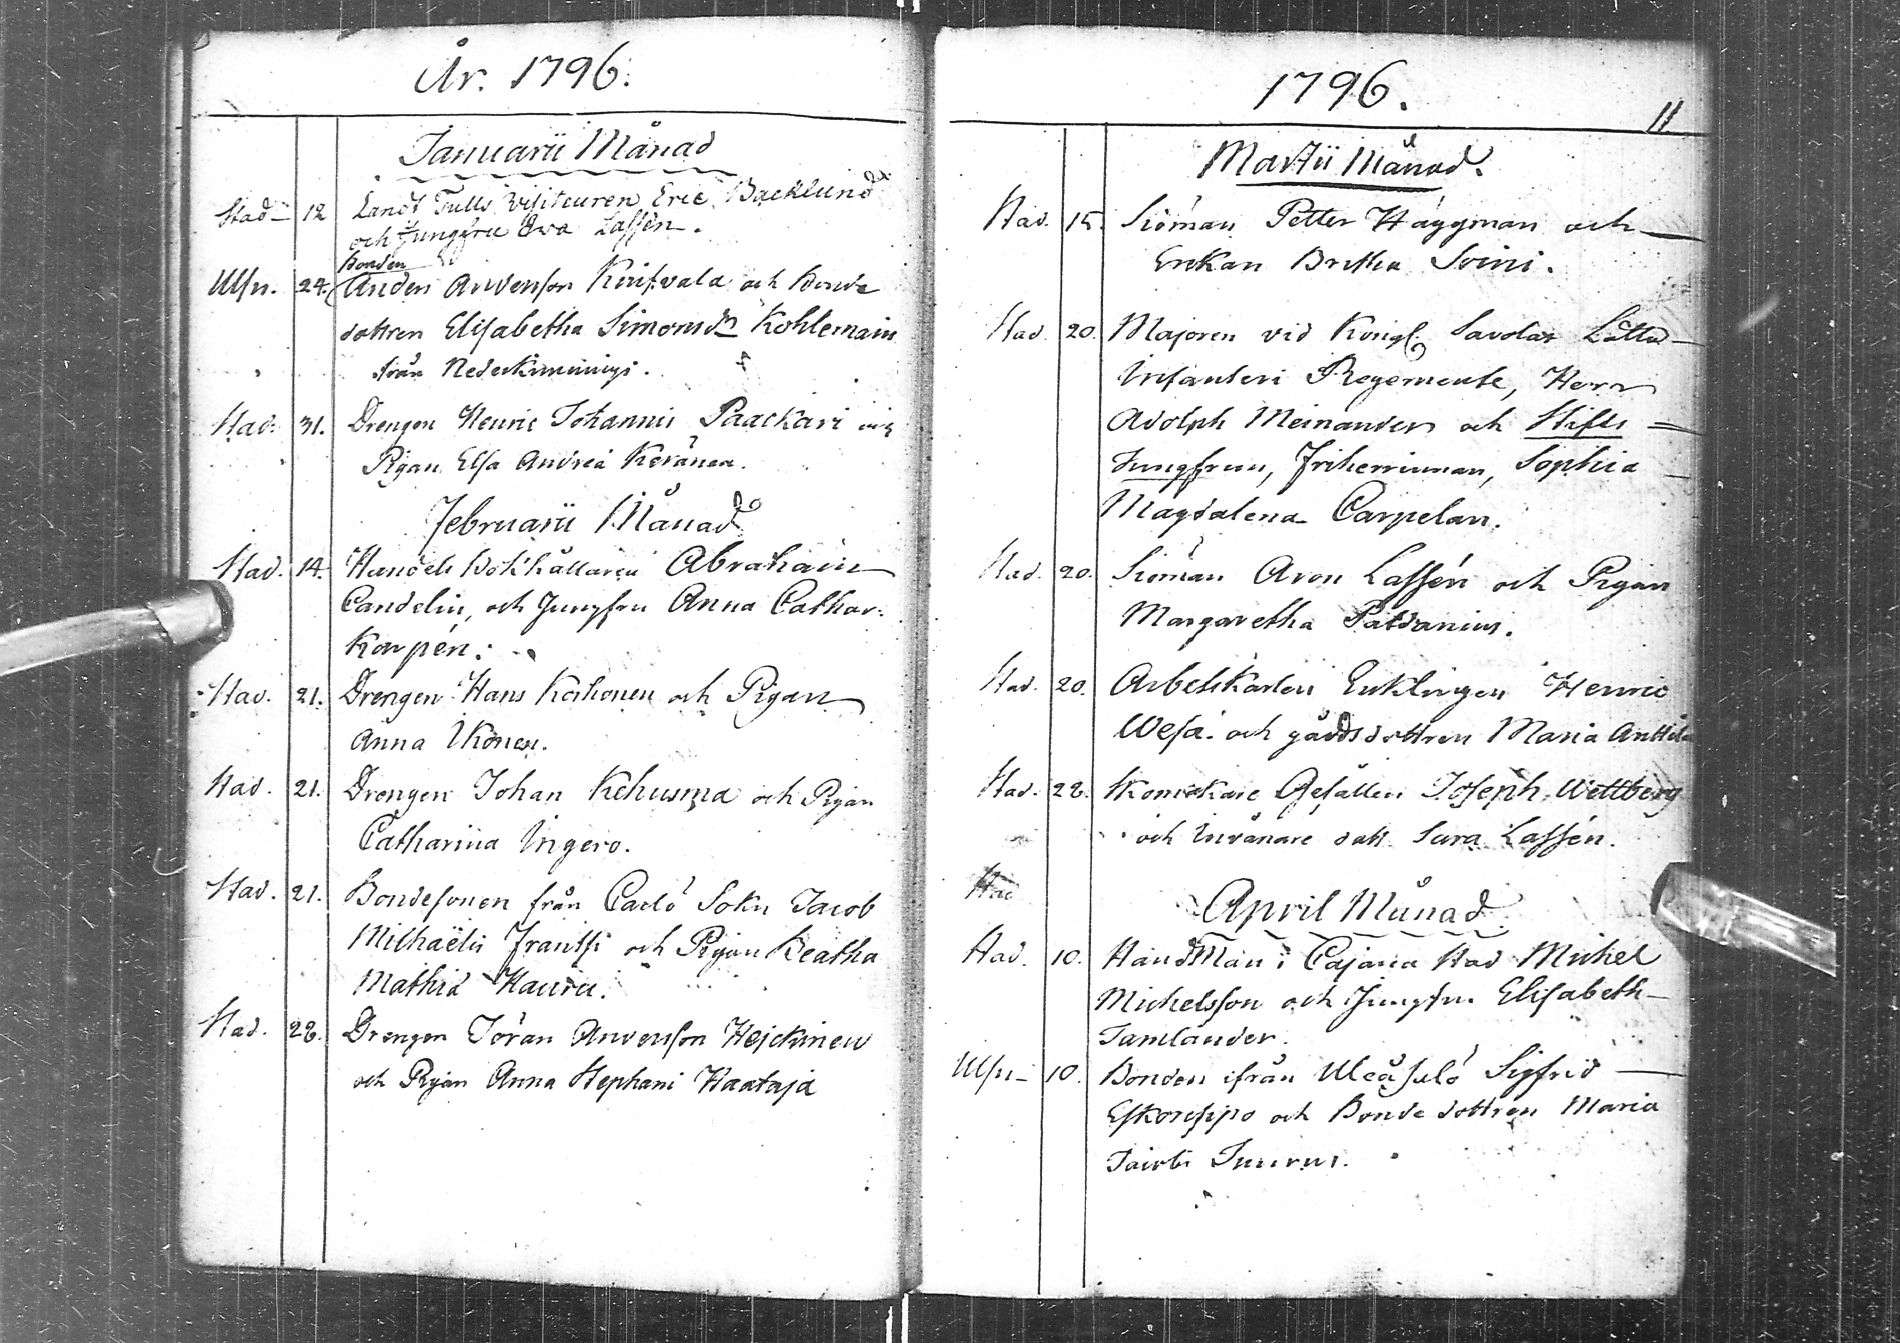 År. 1796.
Januarii Månad
Stad 12 Landt Tulls Visiteuren Eric Backlund
och Jungfru Ewa Lassén.
Bonden
Ulsn. 24. Anders Andersson Kinisvala och Bonde
dottren Elisabetha Simonsdr Kohlemain
ifrån Nederkiminingi.
Stad. 31. Drengen Henric Johannis Paackari och
Pigan Elsa Andreä Keränen.
Februarii Månad
Stad. 14. Handels Bokhållaren Abraham
Candelin, och Jungfru Anna Cathar.
Korpén.
Stad. 21. Drengen Hans Korhonen och Pigan
Anna Ikonen.
Stad. 21. Drengen Johan Kehusma och Pigan
Catharina Ingero.
Stad. 21. Bondesonen från Carlö Sokn Jacob
Michaëlis Frantsi och Pigan Beatha
Mathiä Hauru.
Stad. 28. Drengen Jöran Andersson Hejckinen
och Pigan Anna Stephani Haataja
1796.
11
Martii Månad.
Stad. 15. Siöman Petter Häggman och
Enkan Britha Soini.
Stad. 20. Majoren vid Kongl. Savolax Lätta
Infanteri Regemente, Herr
Adolph Meinander och Stifts
Jungfrun, Friherrinnan, Sophia
Magdalena Carpelan.
Stad. 20. Siöman Aron Lassén och Pigan
Margaretha Paldanius.
Stad. 20. Arbetskarlen Enklingen Henric
Wesa. och gårdsdottren Maria Anttila
Stad. 28. Skomakare Gesällen Joseph Wettberg
och Invånare dott. Sara Lassén.
Stad
April Månad
Stad. 10. Handelsman i Cajana Stad Michel
Michelsson och Jungfru Elisabeth
Tamlander.
Ulsn 10. Bonden ifrån Uleåsalo Sigfrid
Eskorsippo och Bonde dottren Maria
Jacobi Juurus.